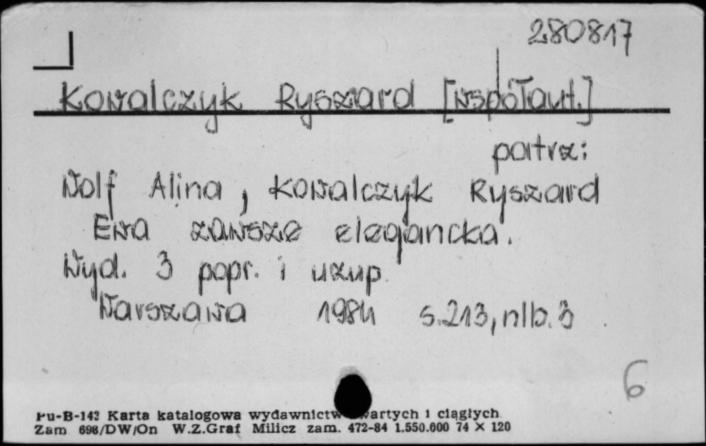 280817
Kowalczyk Ryszard [współaut.]
patrz:
Wolf Alina, Kowalczyk Ryszard
Ewa zawsze elegancka.
Wyd. 3 popr. i uzup.
Warszawa 1984 s. 213, nlb. 3
6
Pu-B-142 Karta katalogowa wydawnictw zwartych i ciągłych
Zam 698/DW/On W.Z.Graf Milicz zam. 472-84 1.550.000 74 × 120